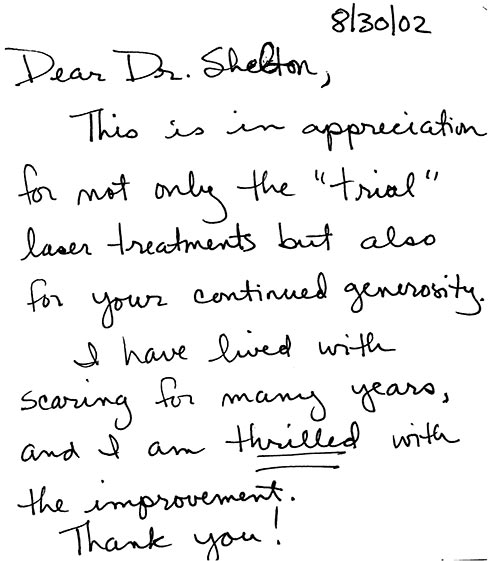 8/30/02
Dear Dr. Shelton,
This is in appreciation
for not only the "trial"
laser treatments but also
for your continued generosity.
I have lived with
scaring for many years,
and I am thrilled with
the improvement.
Thank you!